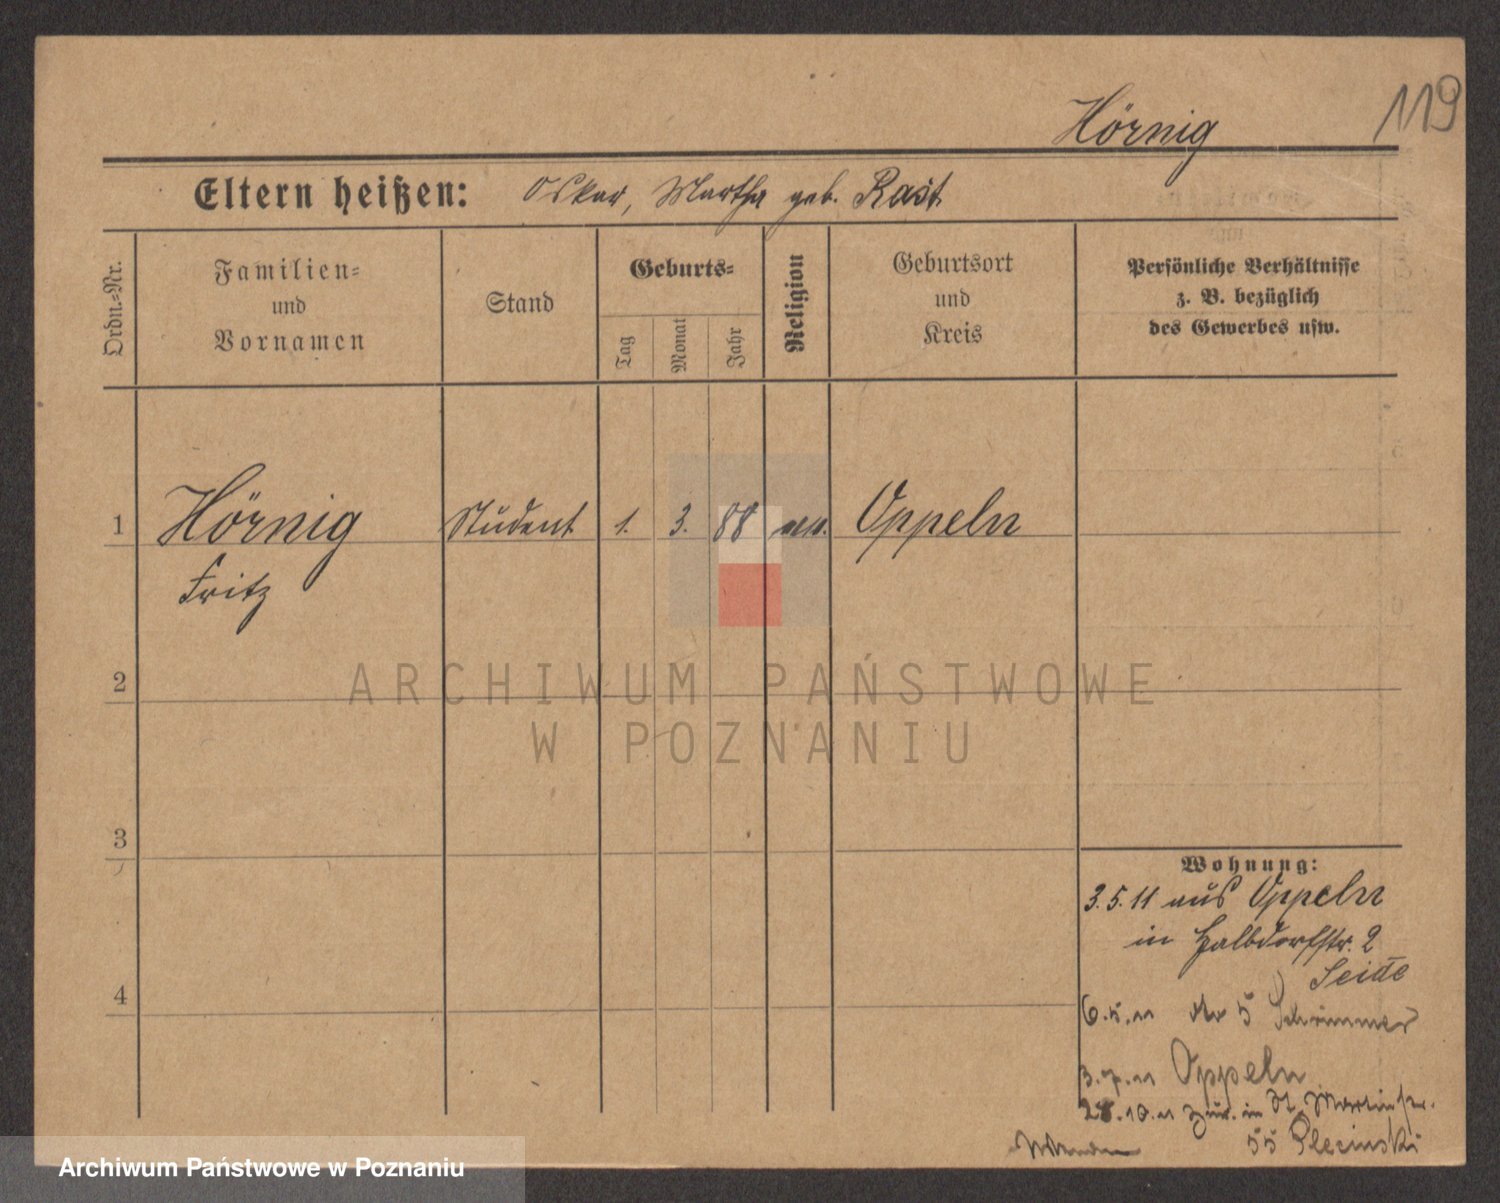 119
Hörnig
Eltern heißen: Oskar, Martha geb. Rast
Ordn.-Nr.
Familien-
und
Vornamen
Stand
Geburts-
Tag
Monat
Jahr
Religion
Geburtsort
und
Kreis
Persönliche Verhältnisse
z. B. bezüglich
des Gewerbes usw.
1 Hörnig Student 1. 3. 88 Oppeln
Fritz
2
ARCHIWUM PAŃSTWOWE
W POZNANIU
3
4
Wohnung:
3.5.11 aus Oppeln
in Halbdorfstr. 2
Seide
6.5.11 5 Schrimmer
3.7.11 Oppeln
28.10.11 zur. in St. Martinstr.
55 Plecinski
Archiwum Państwowe w Poznaniu